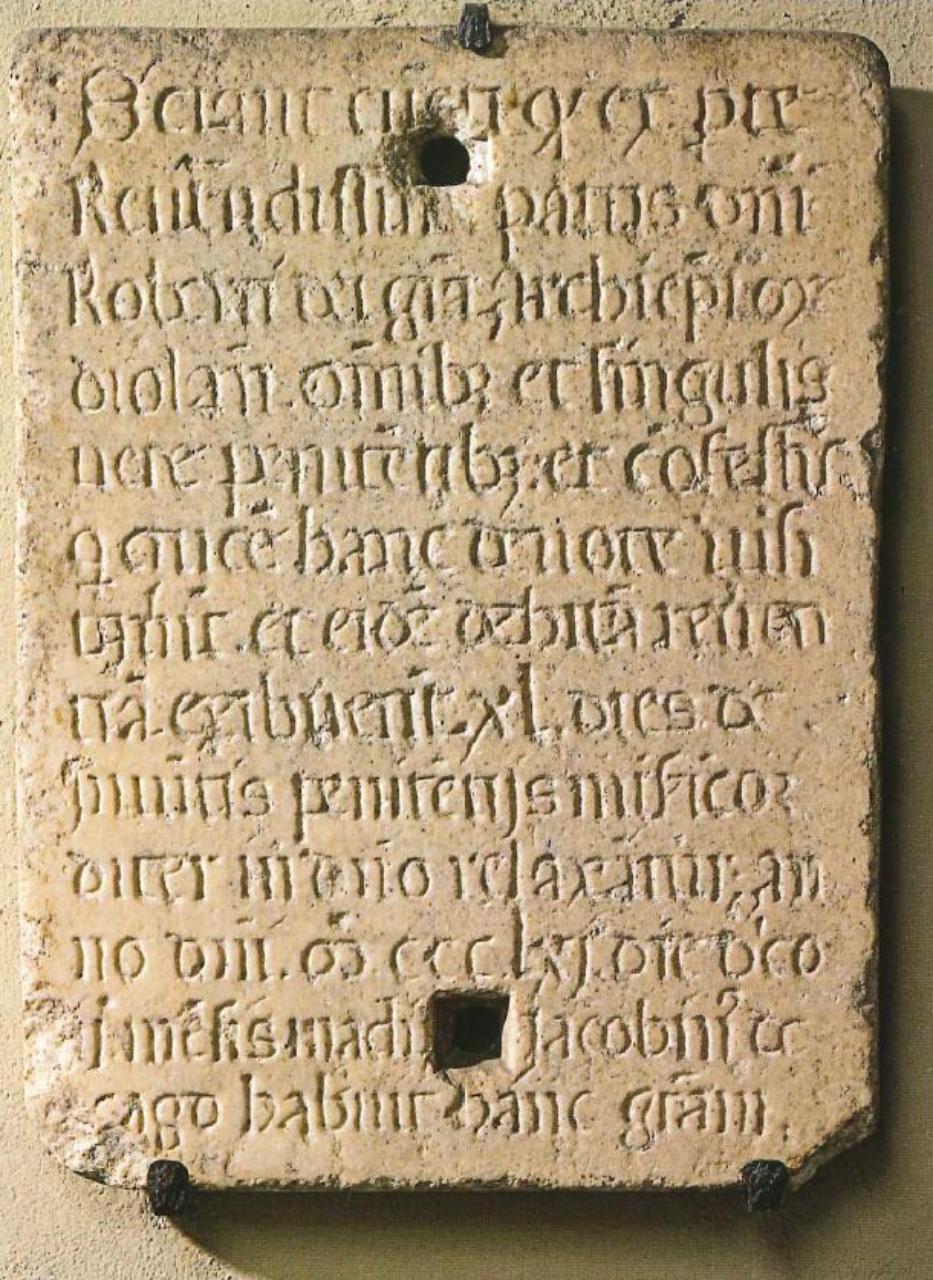 Sciant cūcti q' ex pte
Reuērdissimi patris dnī
Robertī dei grā Archiepī me
diolan̄. omīb; et singulis
uere penitētib; et cōfessis
q cruce hanc deuote uisi
tauīt et eidē debitā reuen
tiā exibuerīt XL dies de
iniūtis penitētijs misicor
diter in dno relaxātur; an
no dni. m ccc lxj die d'co
j mēsis madij Jacobin' de
habuit hanc grām